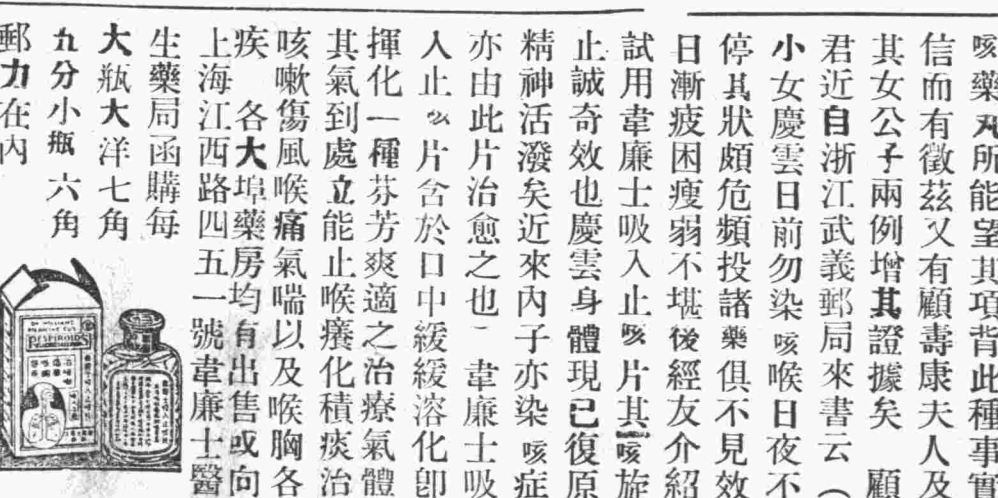 咳藥所能望其項背此種事實
信而有徵茲又有顧壽康夫人及
其女公子兩例增其證據矣 顧
君近自浙江武義郵局來書云（
小女慶雲日前勿染咳喉日夜不
停其狀頗危頻投諸藥俱不見效
日漸疲困瘦弱不堪後經友介紹
試用韋廉士吸入止咳片其咳旋
止誠奇效也慶雲身體現已復原
精神活潑矣近來內子亦染咳症
亦由此片治愈之也 韋廉士吸
入止咳片含於口中緩緩溶化卽
揮化一種芬芳爽適之治療氣體
其氣到處立能止喉癢化積痰治
咳嗽傷風喉痛氣喘以及喉胸各
疾 各大埠藥房均有出售或向
上海江西路四五一號韋廉士醫
生藥局函購每
大瓶大洋七角
九分小瓶六角
郵力在內
RESPIROIDS